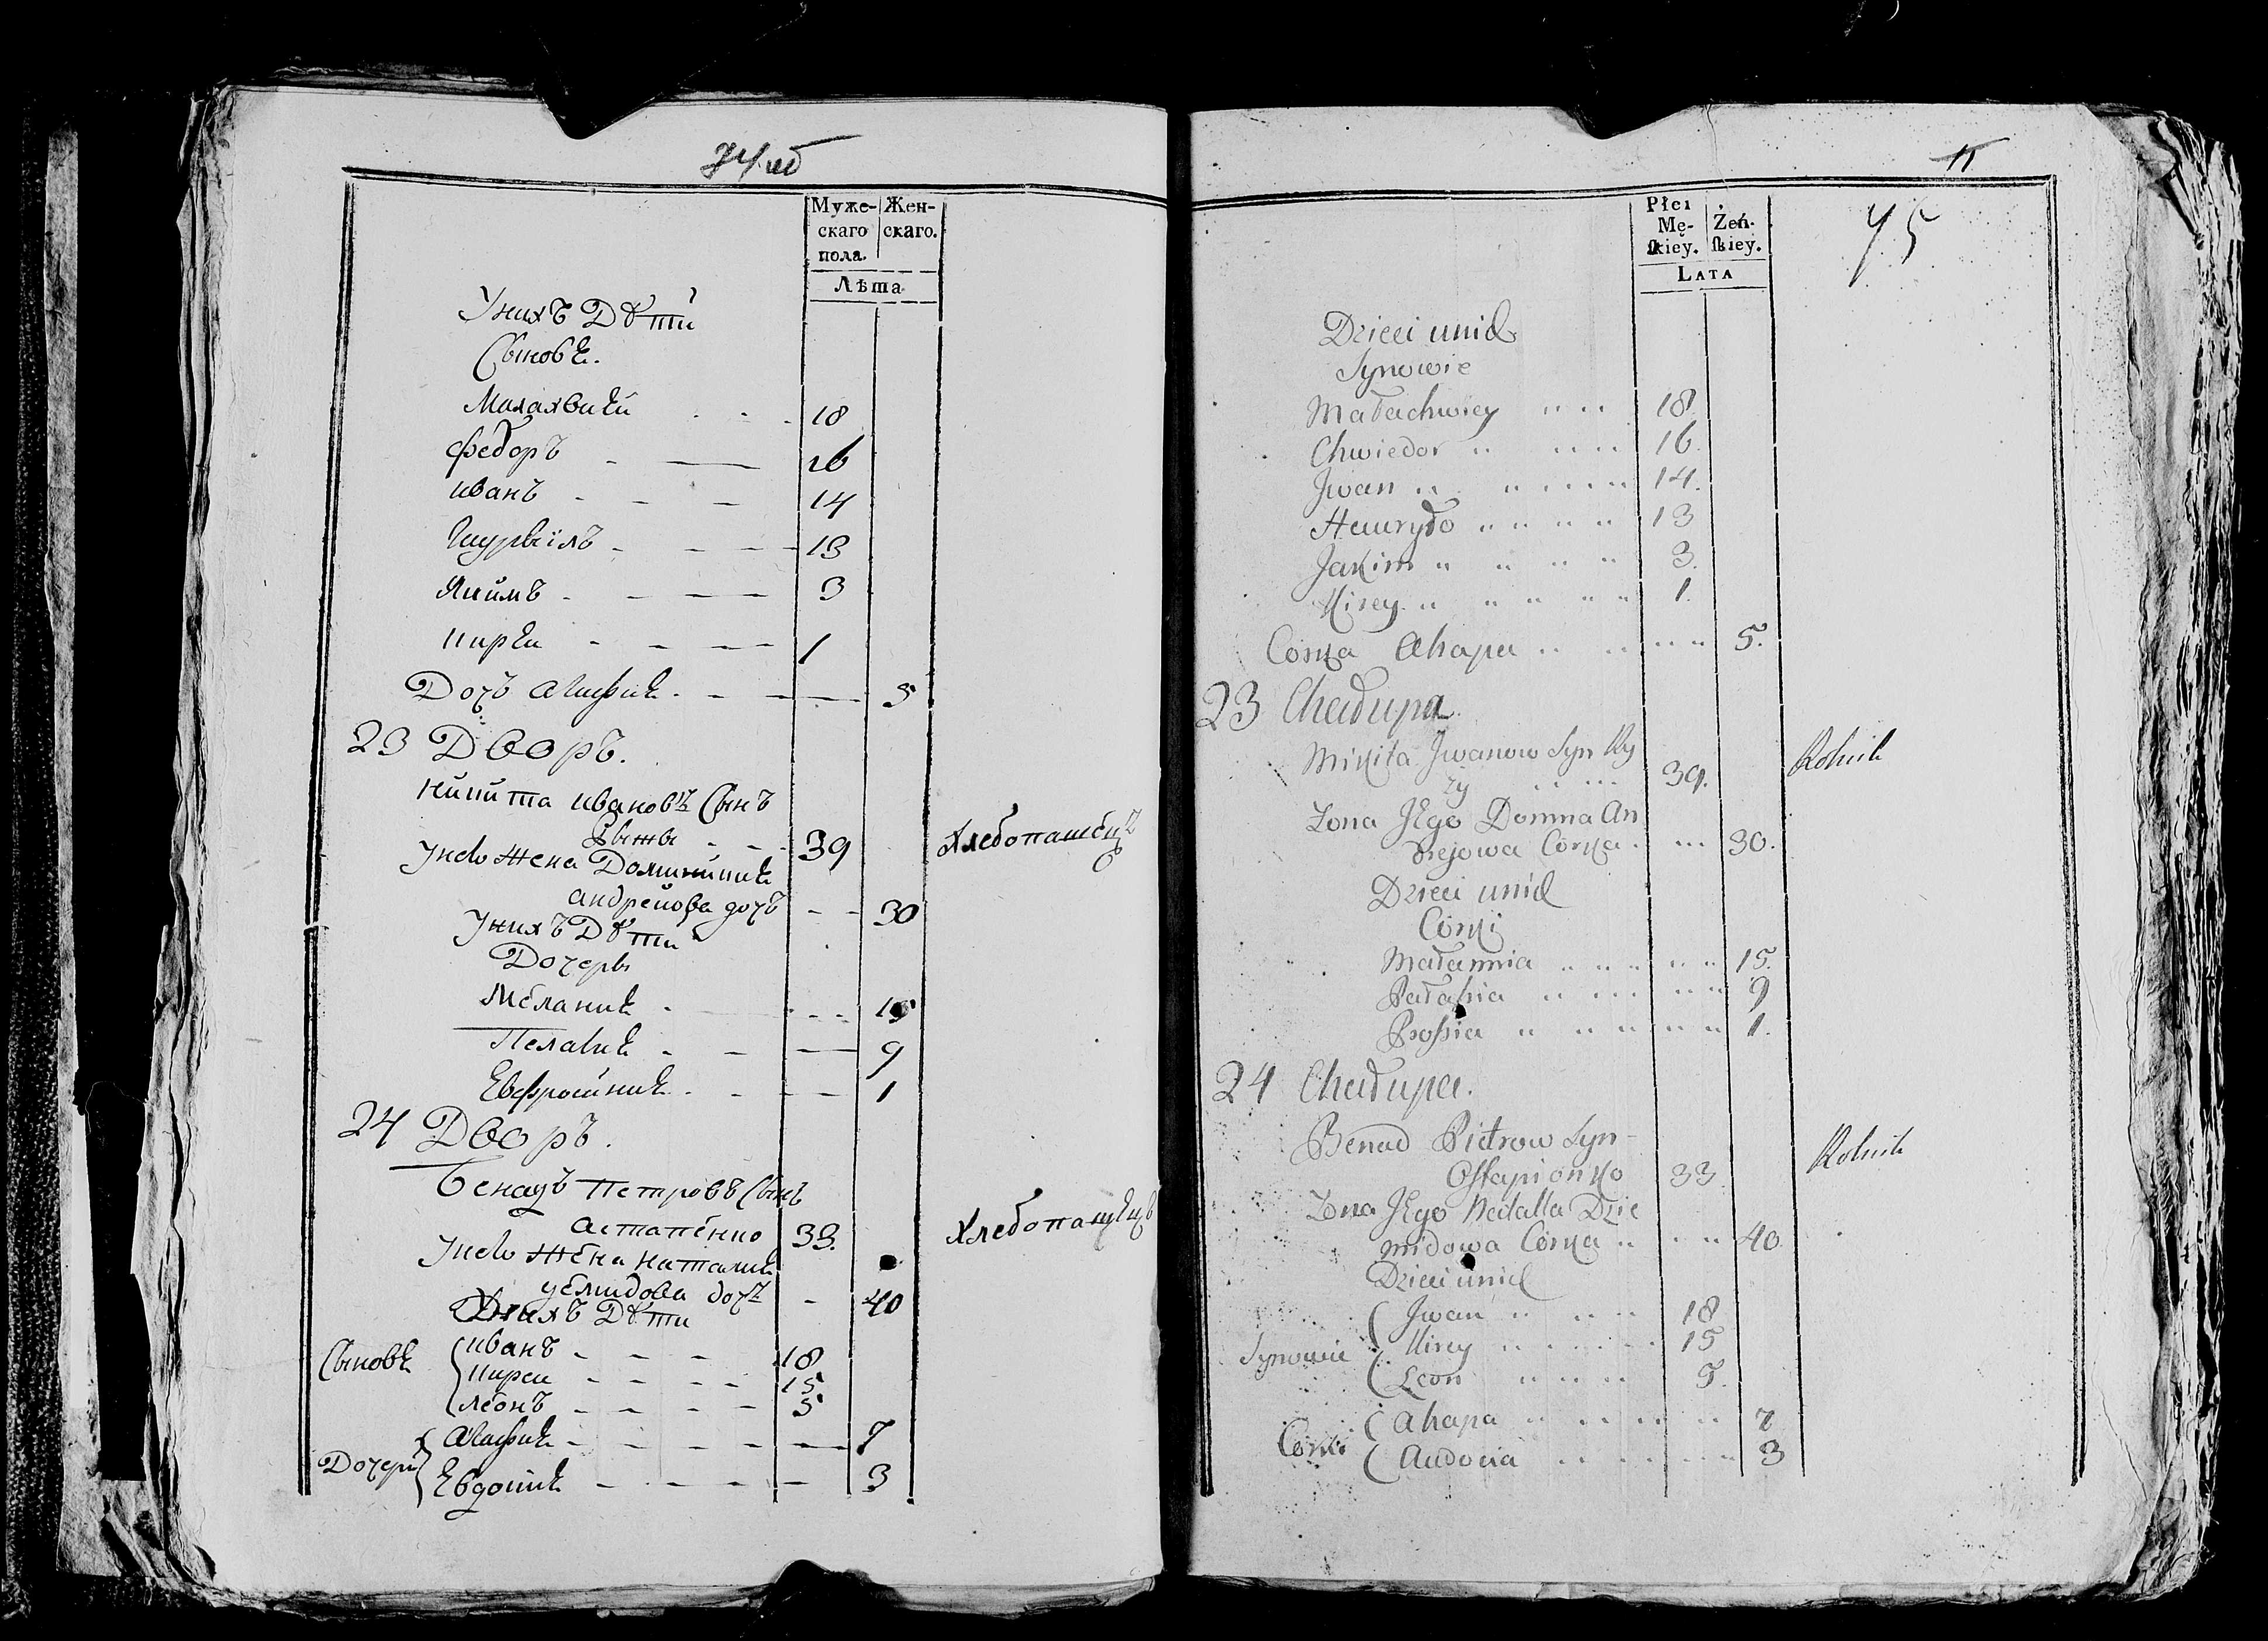 74 об
Муже-
скаго
пола.
Жен-
скаго.
Лѣта
Унихъ Дѣти
Сыновѣ.
Малахвией 18
Федоръ 16
иванъ 14
13
Якимъ 3
кирѣи 1
Дочь 5
23 Дворъ.
никита ивановъ Сынъ
Рыжы 39 Хлебопашецъ
Унево Жена Доминикия
андреиова дочь 30
Унихъ Дѣти
Дочеры
Меланиѣ 15
Пелагиѣ 9
Евфросиниѣ 1
24 Дворъ.
Бенадъ Петровъ Сынъ
астапенко 33. Хлебопашецъ
Унево Жена Наталиѣ
демидова дочь 40
Унихъ Дѣти
Сыновѣ
иванъ 18
киреи 15
леонъ 5
Дочери
Агафиѣ 7
Евдокиѣ 3
11
75
Płci
Mę-
ſkiey.
Żeń-
ſkiey.
Lata
Dzieci unich
Synowie
Małachwiey 18
Chwiedor 16.
Jwan 14.
Hauryło 13
Jakim 3.
Kirey 1.
Corka Ahapa 5.
23 Chałupa.
Mikita Jwanow Syn Ry
ży 39. Rolnik
Zona Jego Domna An
drejowa Corka 30.
Dzieci unich
Corki
Małannia 15.
Pałahia 9
Proſsia 1.
24 Chałupa.
Benad Pietrow Syn
Oſtapionko 33 Rolnik
Zona Jego Natalla Dzie
midowa Corka 40
Dzieci unich
Synowie
Jwan 18
Kirey 15
Leon 5.
Corki
Ahapa 7
Audocia 3